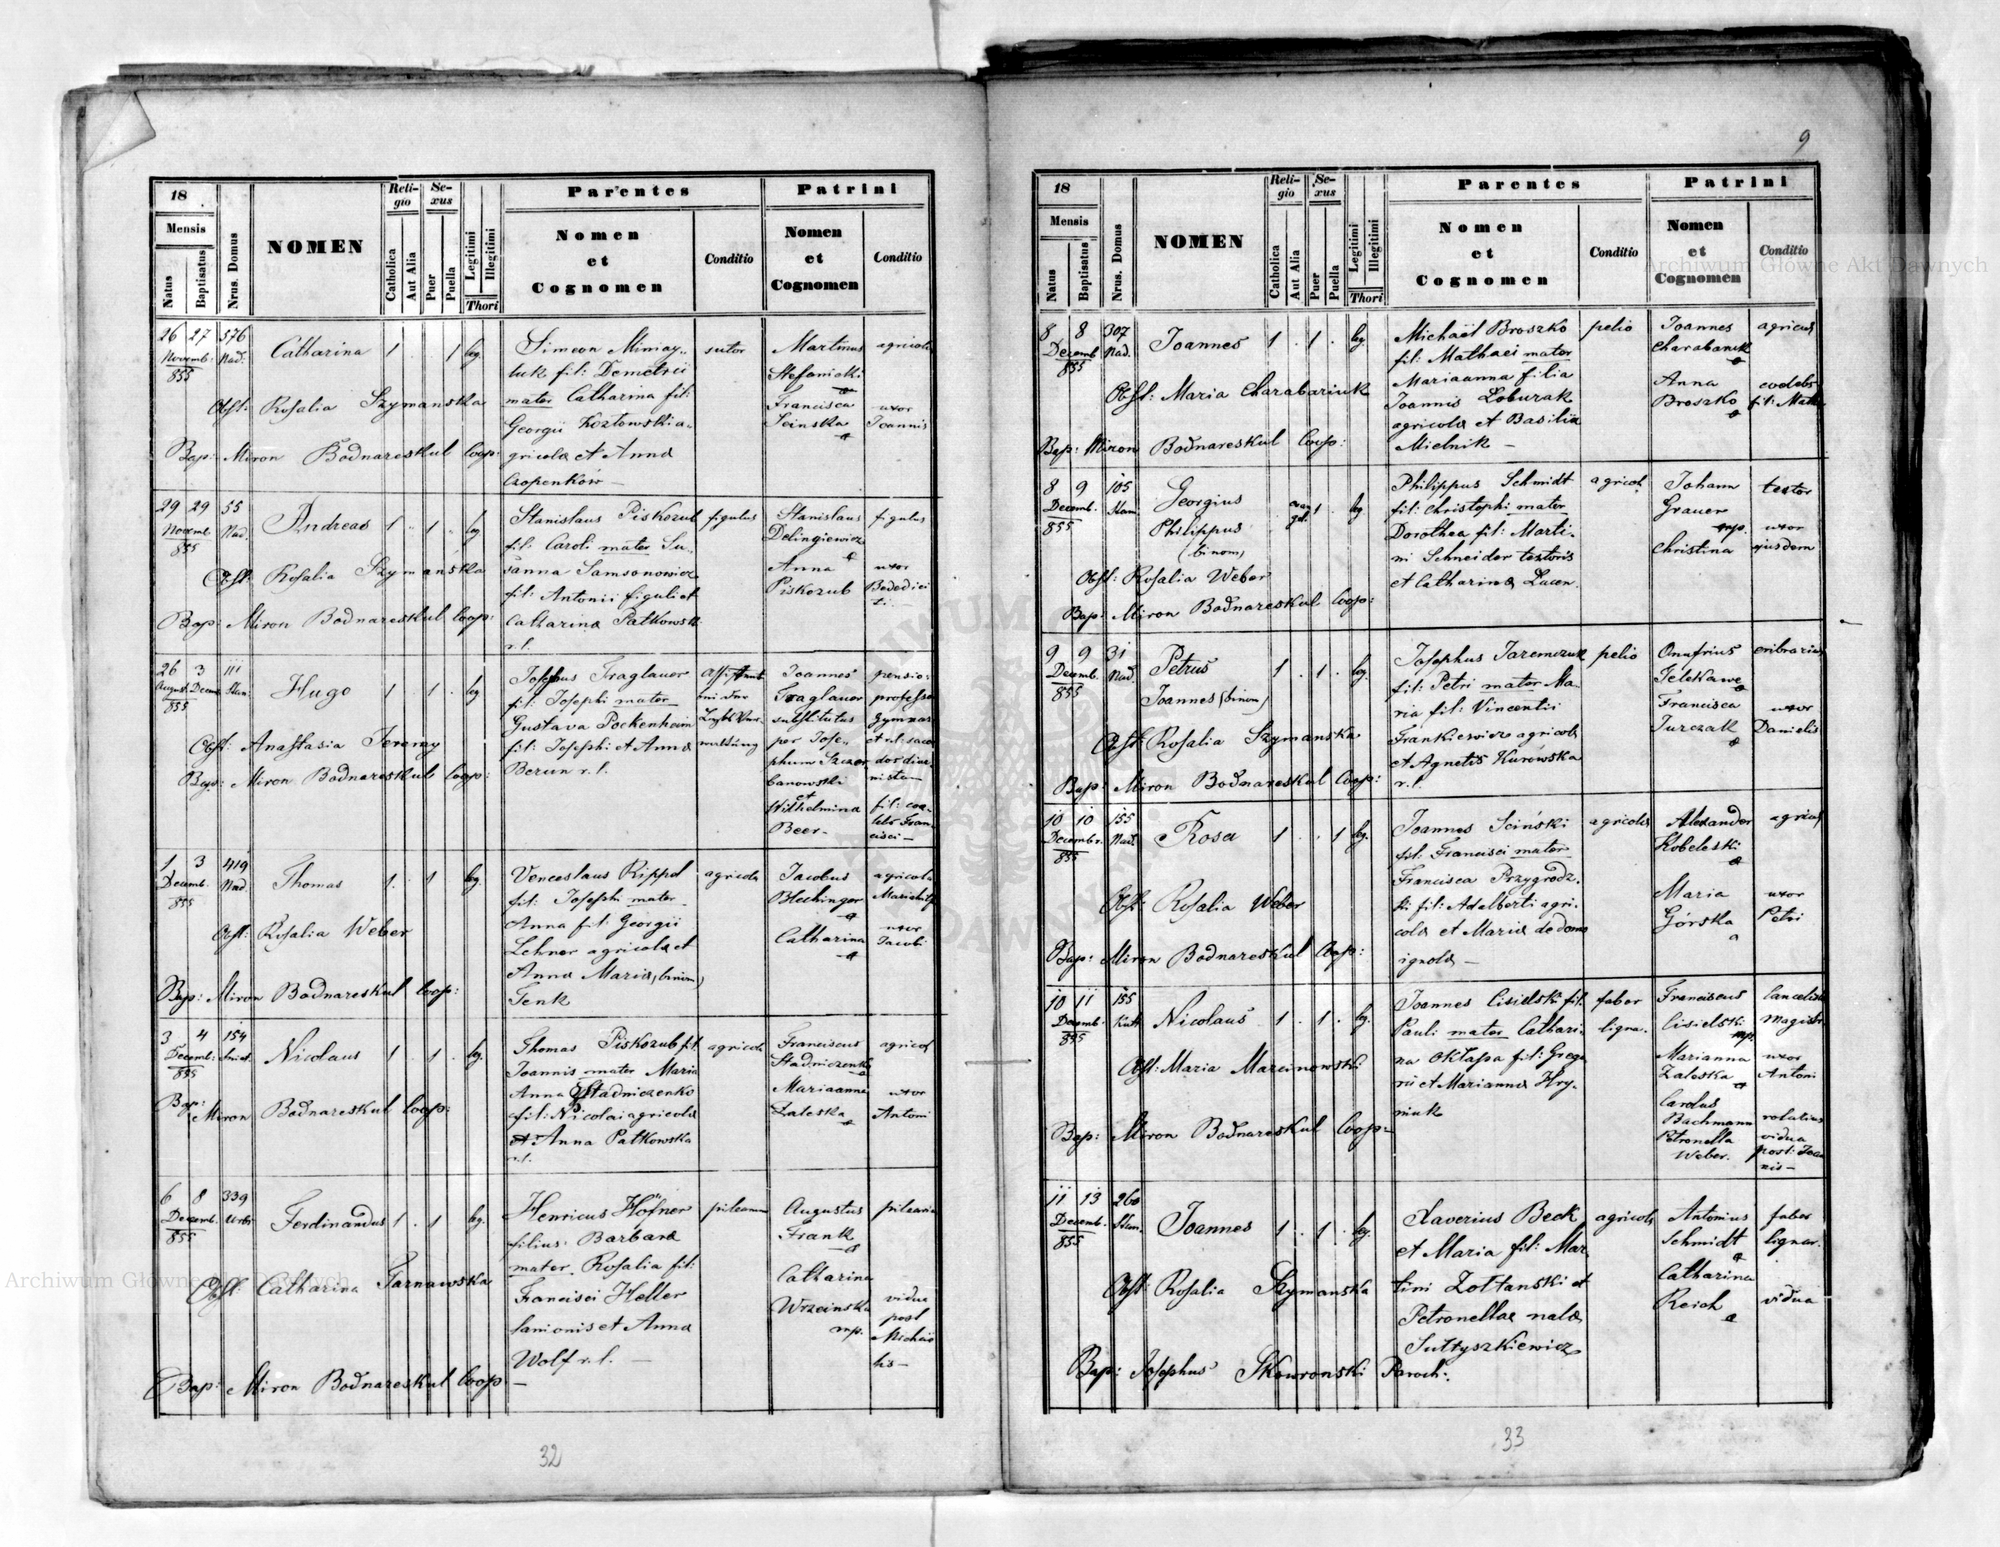 18
Mensis
Natus
Baptisatus
Nrus. Domus
NOMEN
Reli-
gio
Catholica
Aut Alia
Se-
xus
Puer
Puella
Legitimi
Illegitimi
Thori
Parentes
Nomen
et
Cognomen
Conditio
Patrini
Nomen
et
Cognomen
Conditio
26 27 576
Novemb. Nad.
855
Catharina 1 1 leg.
Simeon
luk fil: Demetrii
mater Catharina fil:
Georgii Kozłowski a-
gricolæ et Anna
Czopenków —
sutor
Martinus agricola
Stefanicki
Francisca uxor
Scinska Joannis
Obst: Rosalia Szymańska
Bap: Miron Bodnareskul Coop:
29 29 55
Novemb. Nad.
855
Andreas 1 1 leg
Stanislaus Piskozub figulus
fil: Caroli mater Su-
sanna Samsonowicz
fil: Antonii figuli et
Catharina Patkowsk
r. l.
Stanislaus figulus
Anna uxor
Piskozub
Obst: Rosalia Szymańska
Bap: Miron Bodnareskul Coop:
26 3 111
August. Decemb. Stan:
855
Hugo 1 1 leg
Josephus Fraglauer
fil: Josephi mater
Gustava Pockenheim
fil: Josephi et Anna
Berun r. l.
Joannes pensio:
Fraglauer professor
substitutus gymnas
per Jose-
phum Szczer
banowski
et
Wilhelmina
Beer-
Obst: Anastasia Jeremy
Bap: Miron Bodnareskul Coop:
1 3 419
Decemb. Nad
855
Thomas 1. 1 leg.
Venceslaus Rippel agricola
fil: Josephi mater
Anna fil: Georgii
Lehner agricolæ et
Anna Maria (binom)
Fenk
Jacobus agricola
Blechinger
Catharina uxor
Jacobi
Obst: Rosalia Weber
Bap: Miron Bodnareskul Coop:
3 4 154
Decemb:
855
Nicolaus 1 1 leg.
Thomas Piskozub fil: agricola
Joannis mater Maria
Anna Stadniczenko
fil: Nicolai agricolæ
et Anna Patkowska
r. l.
Franciscus agricol
Stadniczenko
Marianna uxor
Zaleska Antoni
Bap:
Miron Bodnareskul Coop:
6 8 339
Decemb. Urbs
855
Ferdinandus 1 1 leg.
Henricus Höfner
filius Barbara
mater Rosalia fil:
Francisci Heller
lanionis et Anna
Wolf r. l. —
Augustus
Frank
Catharina
Wrzeinska vidua
mp. post
Obst: Catharina Tarnawska
Bap: Miron Bodnareskul Coop.
32
9
18
Mensis
Natus
Baptisatus
Nrus. Domus
NOMEN
Reli-
gio
Catholica
Aut Alia
Se-
xus
Puer
Puella
Legitimi
Illegitimi
Thori
Parentes
Nomen
et
Cognomen
Conditio
Patrini
Nomen
et
Cognomen
Conditio
8 8 307
Decemb. Nad.
855
Joannes 1 1 leg
Michaël Broszko pelio
fil: Mathæi mater
Marianna filia
Joannis Loburak
agricolæ et Basilia
Mielnik —
Joannes agricola
Charabaruk
Anna
Broszko
Obst: Maria Charabaruk
Bap: Miron Bodnareskul Coop:
8 9 105
Decemb. Stan.
855
Georgius
Philippus
(binom)
evan
gel. 1 leg
Philippus Schmidt agricol.
fil: Christophi mater
Dorothea fil: Marti-
ni Schneider textoris
et Catharina
Johann textor
Grauer
mp.
Christina uxor
ejusdem
Obst: Rosalia Weber
Bap: Miron Bodnareskul Coop:
9 9 31
Decemb. Nad.
855
Petrus 1 1 leg.
Joannes (binom)
Josephus Jaremczuk pelio
fil: Petri mater Ma-
ria fil: Vincentii
Frankiewicz agricol
et Agnetis Kurowska
r. l.
Onufrius cribrarius
Francisca uxor
Jurczak Danielis
Obst: Rosalia Szymanska
Bap: Miron Bodnareskul Coop:
10 10 155
Decembr. Nad.
855
Rosa 1 1 leg.
Joannes Sciński agricola
fil: Francisci mater
Francisca Przygrodz-
ki fil: Adelberti agri-
colæ et Maria de domo
ignota —
Alexander agricol
Kobeleski
Maria uxor
Górska Petri
Obst: Rosalia Weber
Bap: Miron Bodnareskul Coop:
10 11 155
Decemb. Kutt
855
Nicolaus 1 1 leg.
Joannes Cisielski fil. faber
Pauli mater Cathari- lignar.
na Oktapa fil: Grego
rii et Marianna Hry-
niuk
Franciscus
Cisielski Magistr
mp.
Marianna uxor
Zaleska Antoni
Carolus
Bachmann
Petronella vidua
Weber. post: Joan
nis —
Obst: Maria Marcinowski
Bap: Miron Bodnareskul Coop:
11 13 260
Decemb. Stan.
855
Joannes 1 1 leg.
Xaverius Beck agricola
et Maria fil: Mar
tini Zołtanski et
Petronellæ natæ
Sułtyszkiewicz
Antonius faber
Schmidt lignar.
Catharina
Reich vidua
Obst Rosalia Szymanska
Bap: Josephus Skowronski Paroch:
33
Archiwum Główne Akt Dawnych
Archiwum Główne Akt Dawnych